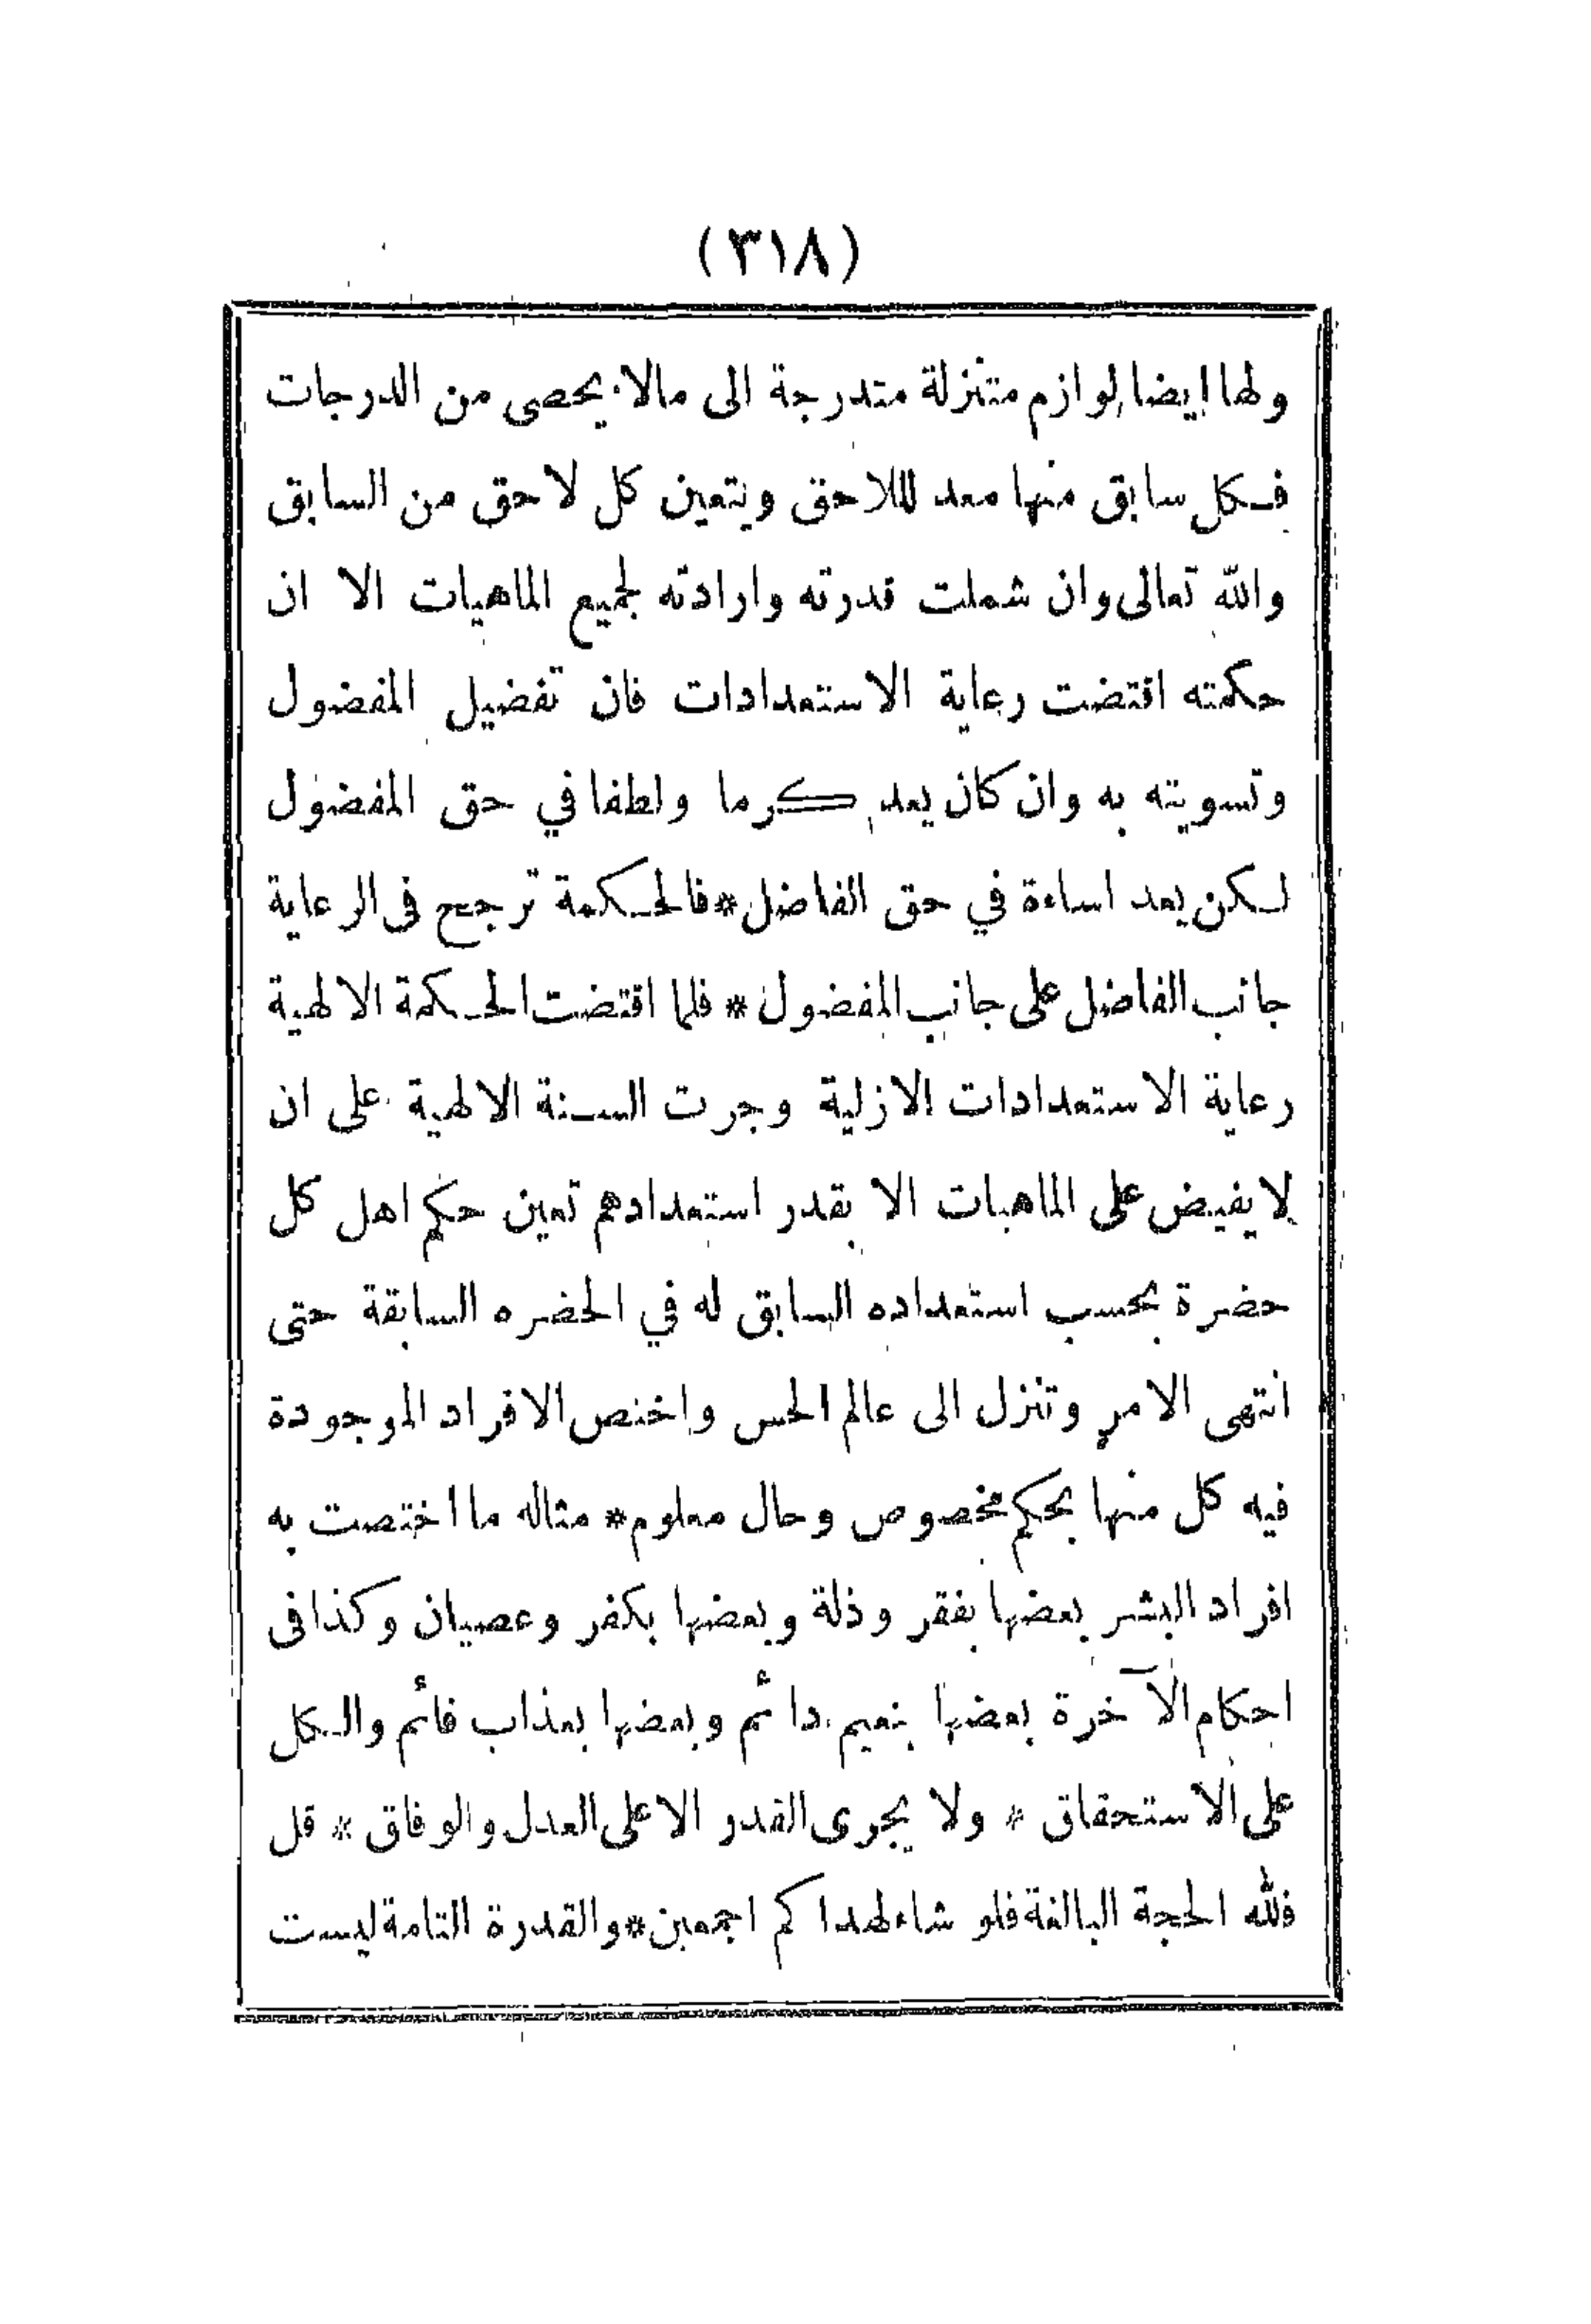 (٣١٨)
ولها ايضا لوازم متنزلة متدرجة الى مالا يحصى من الدرجات
فكل سابق منها معد لللاحق ويتعين كل لاحق من السابق
والله تعالى وان شملت قدرته وارادته لجميع الماهيات الا ان
حكمته اقتضت رعاية الاستعدادات فان تفضيل المفضول
وتسويته به وان كان يعد كرما ولطفا في حق المفضول
لكن يعد اساءة في حق الفاضل * فالحكمة ترجح فى الرعاية
جانب الفاضل على جانب المفضول * فلما اقتضت الحكمة الالهية
رعاية الاستعدادات الازلية وجرت السنة الالهية على ان
لا يفيض على الماهيات الا بقدر استعدادهم تعين حكم اهل كل
حضرة بحسب استعداده السابق له في الحضره السابقة حتى
انتهى الامر وتنزل الى عالم الحس واختص الافراد الموجودة
فيه كل منها بحكم مخصوص وحال معلوم * مثاله ما اختصت به
افراد البشر بعضها بفقر وذلة وبعضها بكفر وعصيان وكذا فى
احكام الآخرة بعضها بنعيم دائم وبعضها بعذاب قائم والكل
على الاستحقاق * ولا يجرى القدر الا على العدل والوفاق * قل
فلله الحجة البالغة فلو شاء لهداكم اجمعين * والقدرة التامة ليست